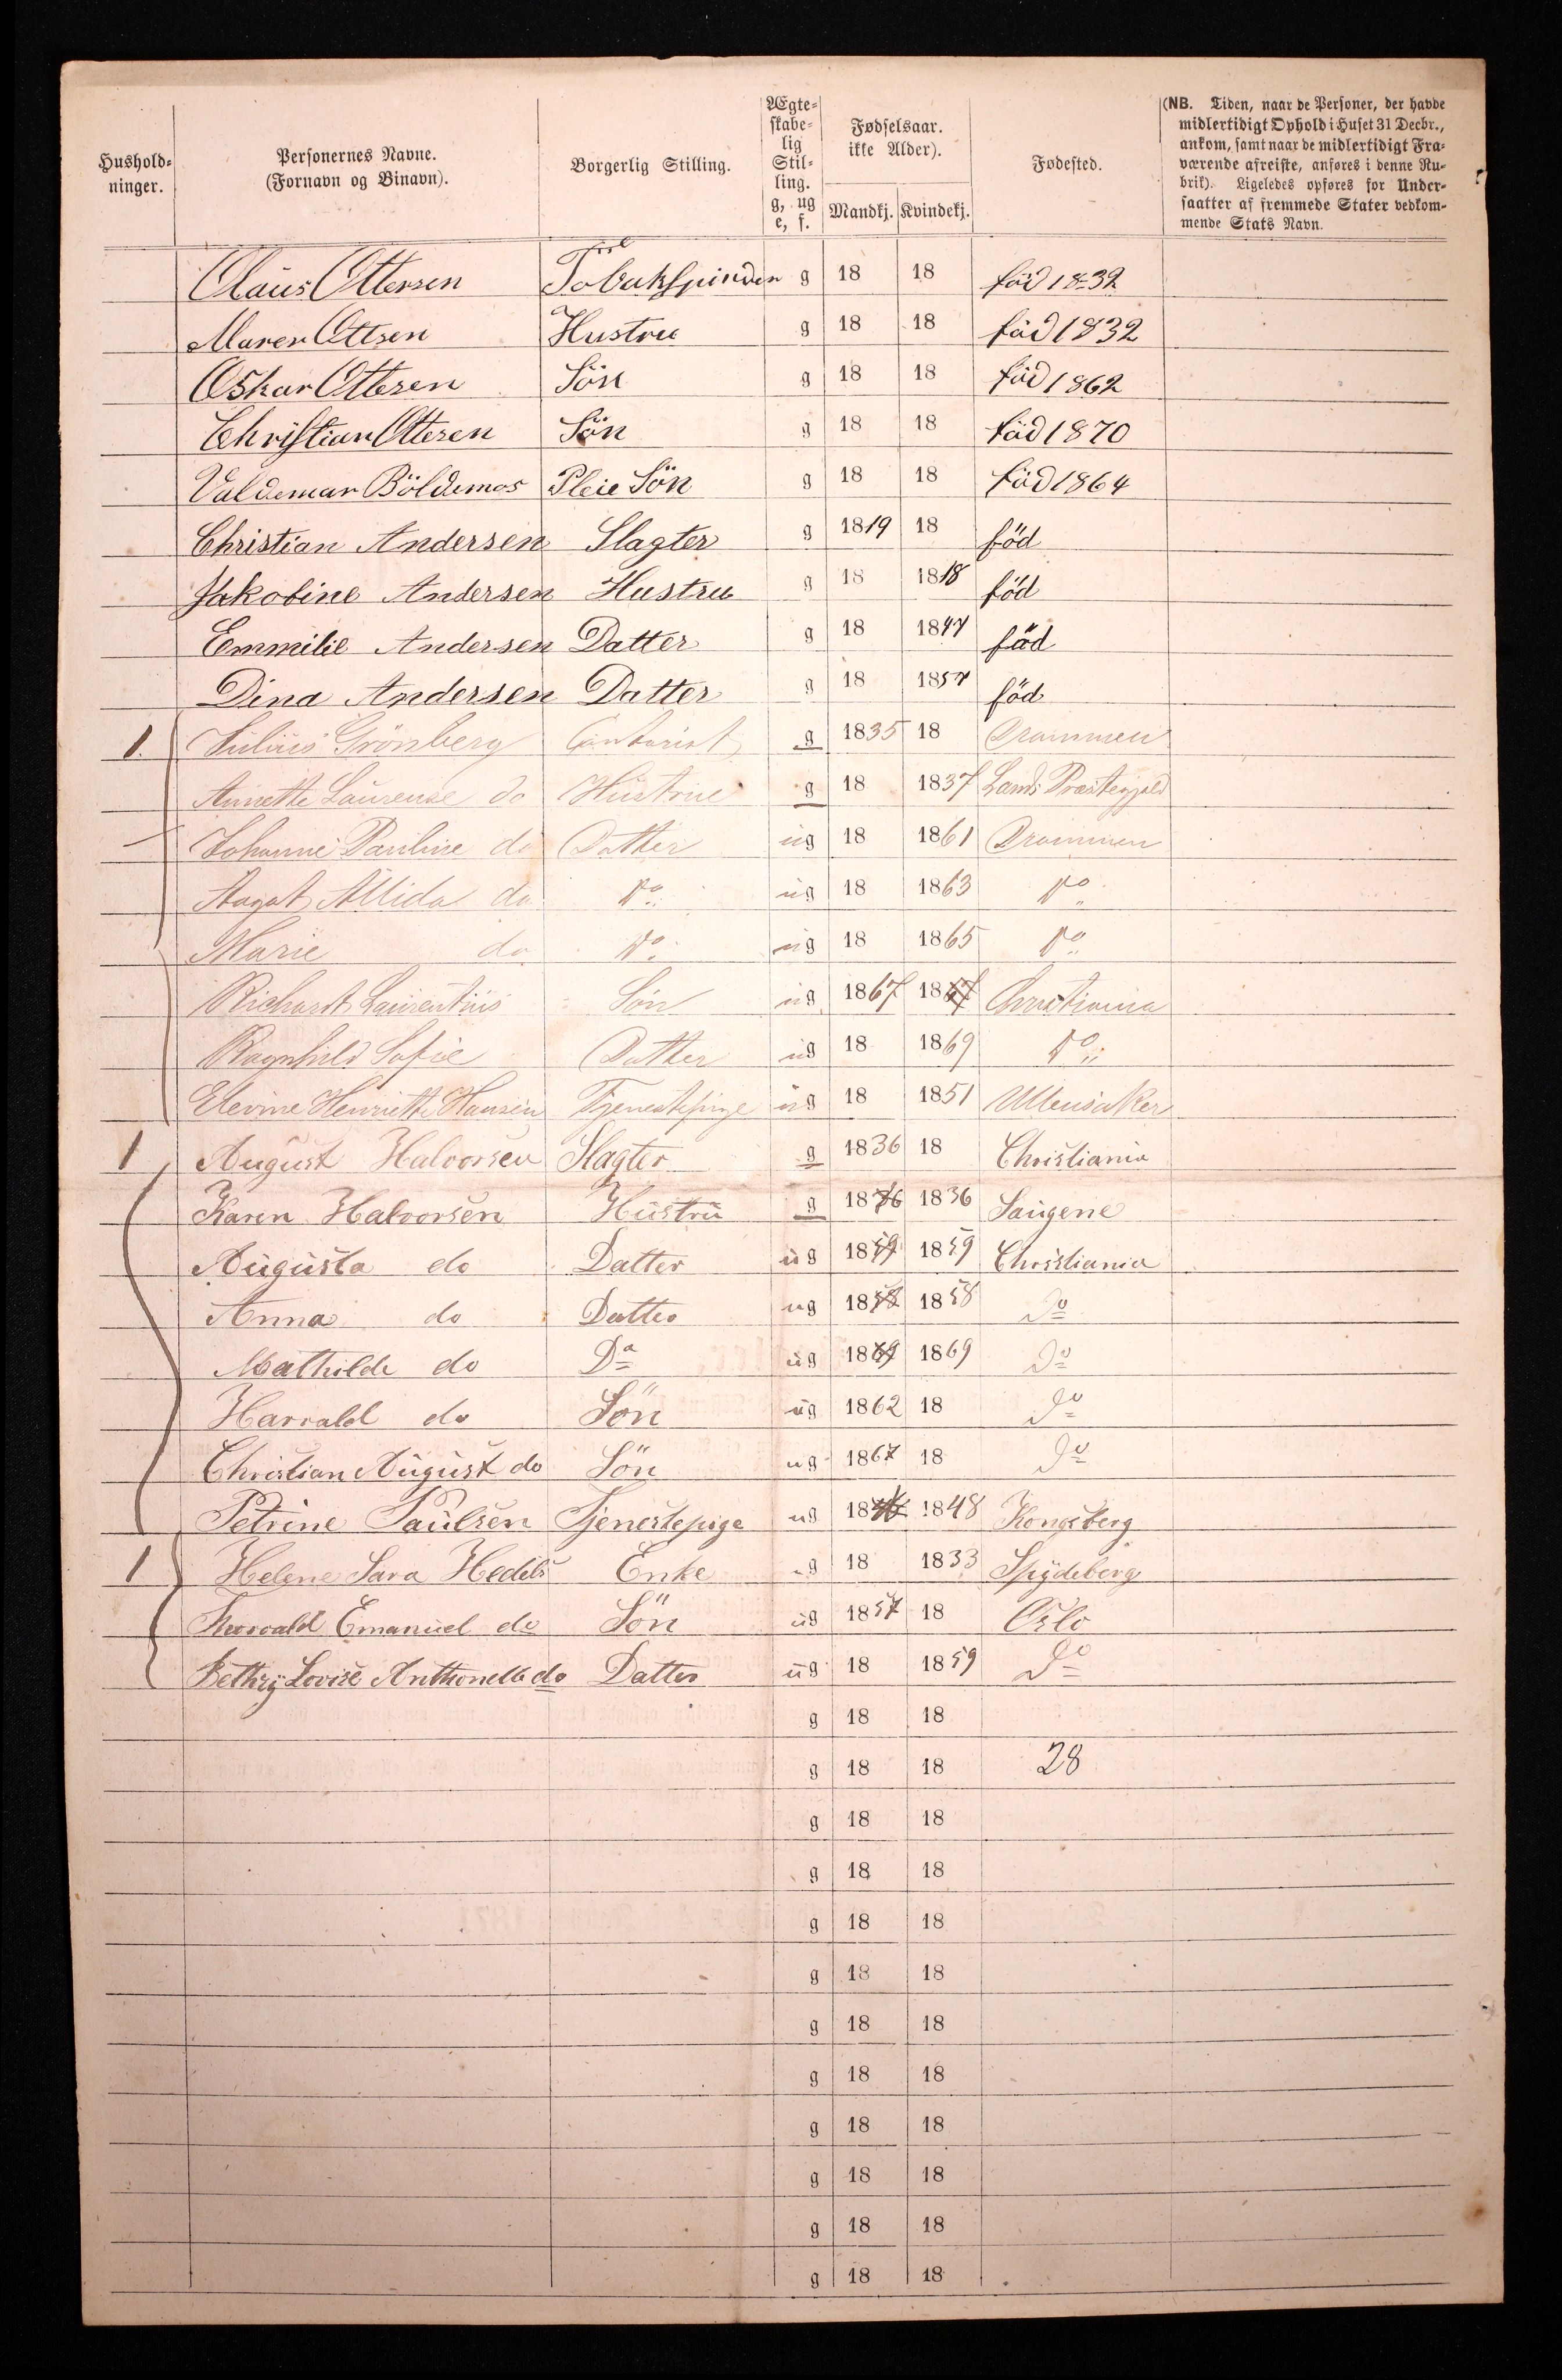 Hushold-
ninger.
Personernes Navne.
(Fornavn og Binavn).
Borgerlig Stilling.
Ægte-
skabe-
lig
Stil-
ling.
g, ug
e, f.
Fødselsaar.
ikke Alder).
Mandkj. Kvindekj.
Fødested.
(NB. Tiden, naar de Personer, der havde
midlertidigt Ophold i Huset 31 Decbr.,
ankom, samt naar de midlertidigt Fra-
værende afreiste, anføres i denne Ru-
brik). Ligeledes opføres for Under-
saatter af fremmede Stater vedkom-
mende Stats Navn.
Claus Ottersen Tobakspinder g 18 18 föd 1832
Maren Ottsen Hustru g 18 18 föd 1832
Oskar Ottesen Sön g 18 18 föd 1862
Christian Ottesen Sön g 18 18 föd 1870
Valdemar Böldemos Pleie Sön g 18 18 föd 1864
Christian Andersen Slagter g 1819 18 föd
Jakobine Andersen Hustru g 18 1818 föd
Emmilie Andersen Datter g 18 1847 föd
Dina Andersen Datter g 18 1857 föd
1. Julius Grönberg Contorist g 1835 18 Drammen
Annette Laurense do Hustrue g 18 1837 Lands Prästegjeld
Johanne Pauline do Datter ug 18 1861 Drammen
Aagot Allida do Do ug 18 1863 Do
Marie do Do ug 18 1865 Do
Richardt Laurentius Sön ug 1867 1867 Christiania
Ragnhild Sofie Datter ug 18 1869 Do
Elevine Henriette Hansen Tjenestepige ug 18 1851 Ullensaker
1 August Halvorsen Slagter g 1836 18 Christiania
Karen Halvorsen Hustru g 1836 1836 Saugene
Augusta do Datter ug 1859 1859 Christiania
Anna do Datter ug 1858 1858 Do
Mathilde do Da ug 1869 1869 Do
Harrald do Sön ug 1862 18 Do
Christian August do Sön ug 1867 18 Do
Petrine Paulsen Tjenestepige ug 18 1848 Kongsberg
1 Helene Sara Hedels Enke g 18 1833 Spydeberg
Thorvald Emanuel do Sön ug 1857 18 Oslo
Bethzy Lovise Anthonette do Datter ug 18 1859 Do
g 18 18
g 18 18 28
g 18 18
g 18 18
g 18 18
g 18 18
g 18 18
g 18 18
g 18 18
g 18 18
g 18 18
g 18 18